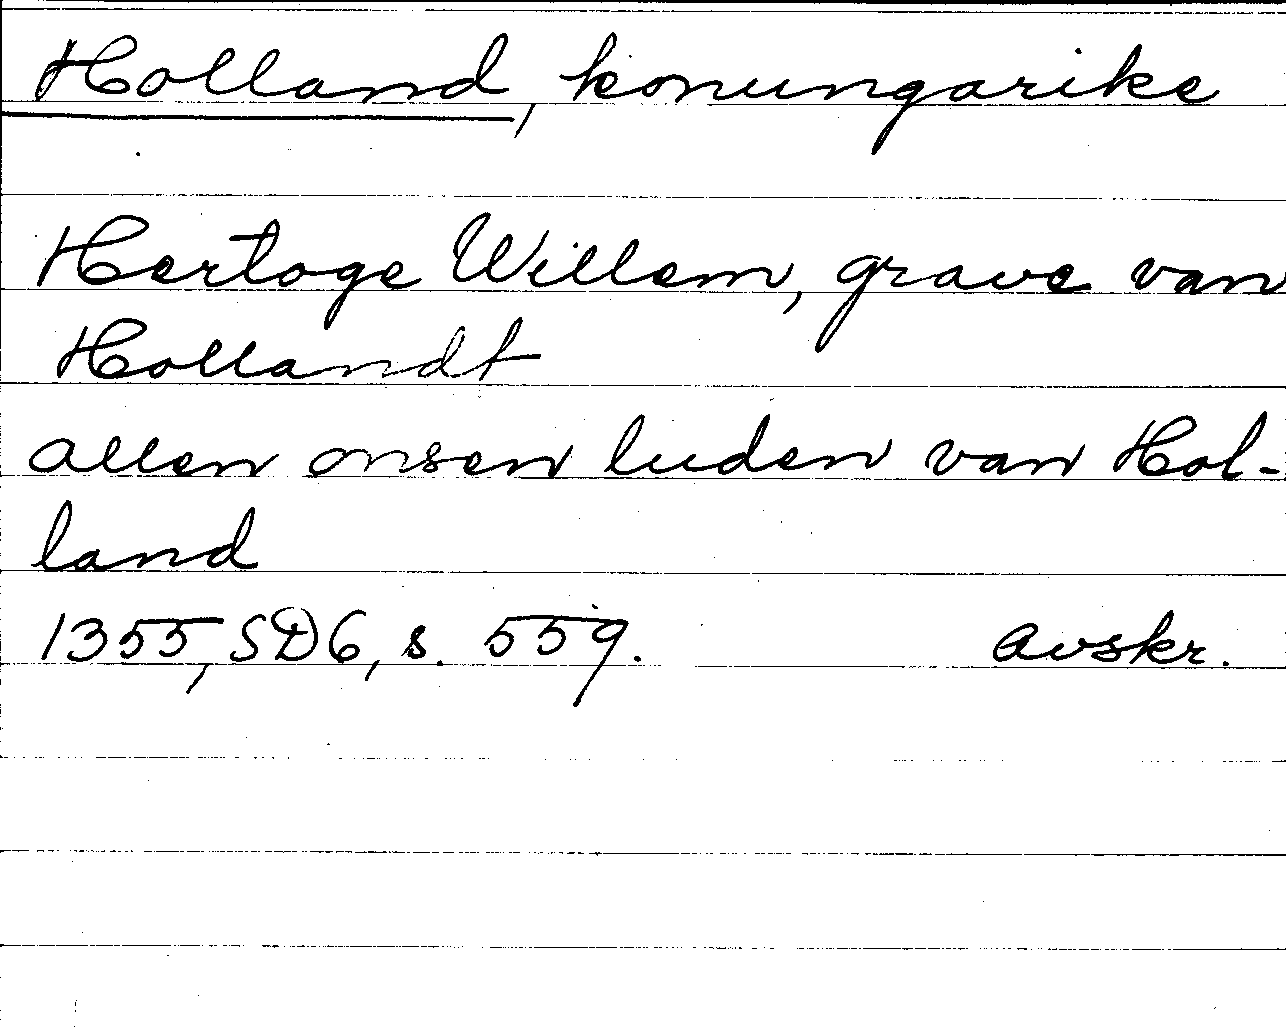 Holland, konungarike
Hertoge Willem, grave van
Hollandt
allen onsen luden van Hol-
land
1355, SD6, s. 559. Avskr.